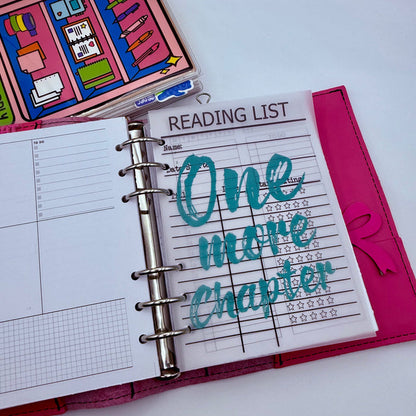 TO DO
READING LIST
Name:
One
more
Chapter